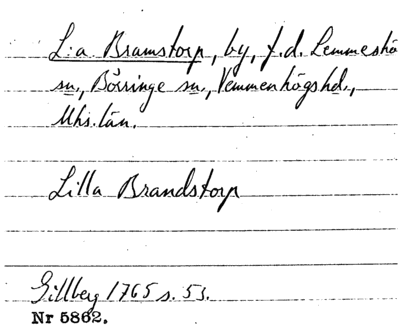 L:a Bramstorp, by, f.d. Lemmeshö
sn., Börringe sn., Vemmenhögshd.,
Mhs. län.
Lilla Brandstorp
Gillberg 1765 s. 53.
Nr 5862.